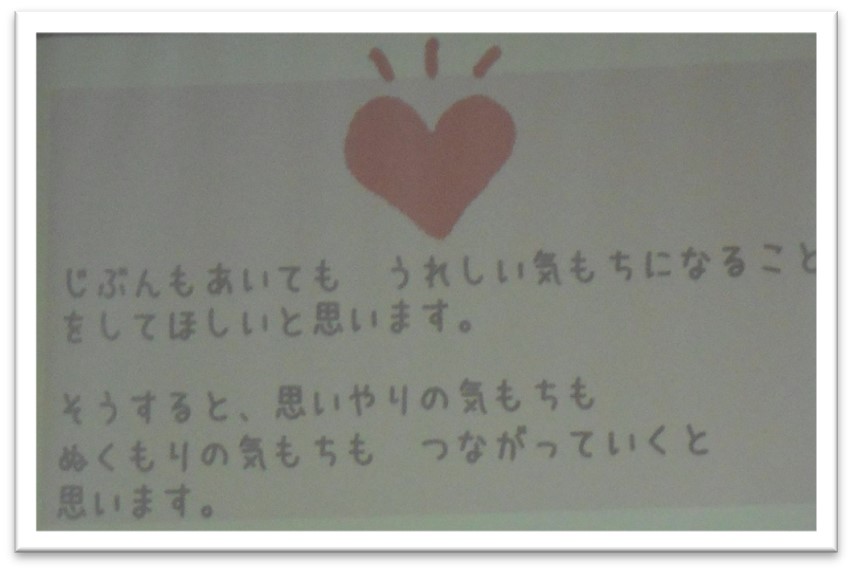 じぶんもあいても　うれしい気もちになること
をしてほしいと思います。
そうすると、思いやりの気もちも
ぬくもりの気もちも　つながっていくと
思います。